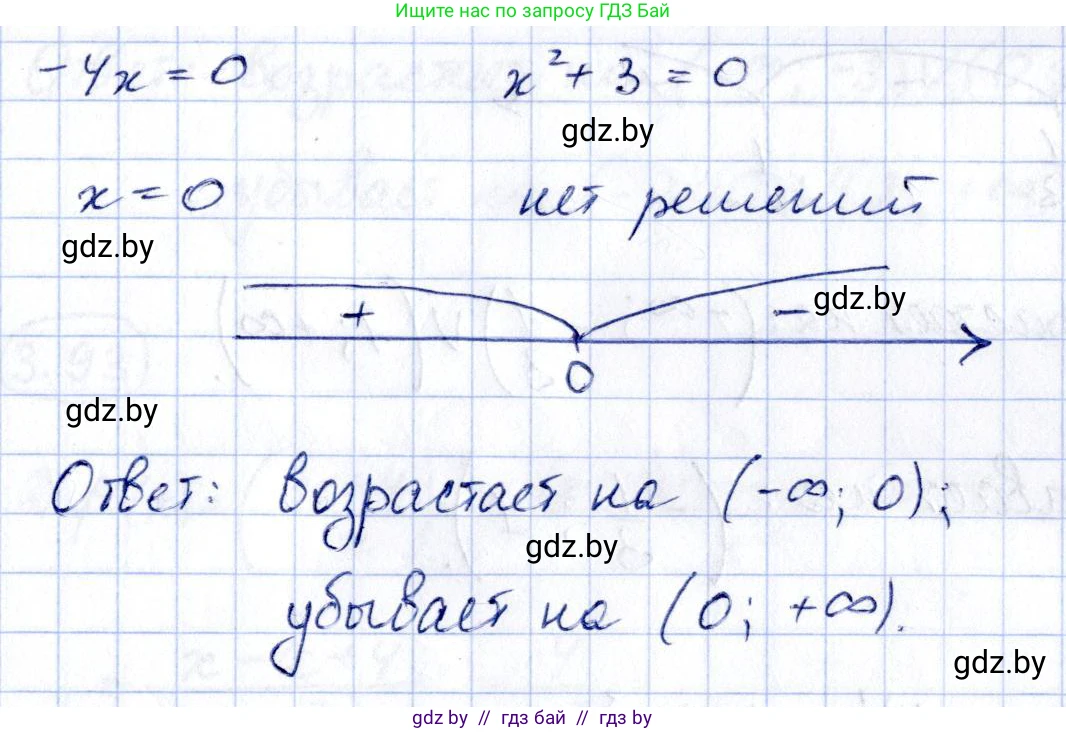 Ищите нас по запросу ГДЗ Бай
-4x = 0 x² + 3 = 0
gdz.by
x = 0 нет решений
gdz.by
gdz.by
+ -
0
gdz.by
Ответ: возрастает на (-∞; 0);
gdz.by
убывает на (0; +∞).
gdz.by
gdz.by // гдз бай // гдз by